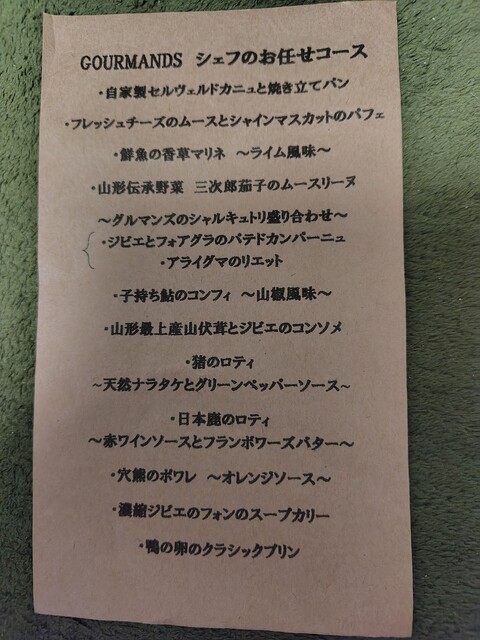 GOURMANDS シェフのお任せコース
・自家製セルヴェルドカニュと焼き立てパン
・フレッシュチーズのムースとシャインマスカットのパフェ
・鮮魚の香草マリネ ～ライム風味～
・山形伝承野菜 三次郎茄子のムースリーヌ
～グルマンズのシャルキュトリ盛り合わせ～
・ジビエとフォアグラのパテドカンパーニュ
・アライグマのリエット
・子持ち鮎のコンフィ ～山椒風味～
・山形最上産山伏茸とジビエのコンソメ
・猪のロティ
～天然ナラタケとグリーンペッパーソース～
・日本鹿のロティ
～赤ワインソースとフランボワーズバター～
・穴熊のポワレ ～オレンジソース～
・濃縮ジビエのフォンのスープカリー
・鴨の卵のクラシックプリン